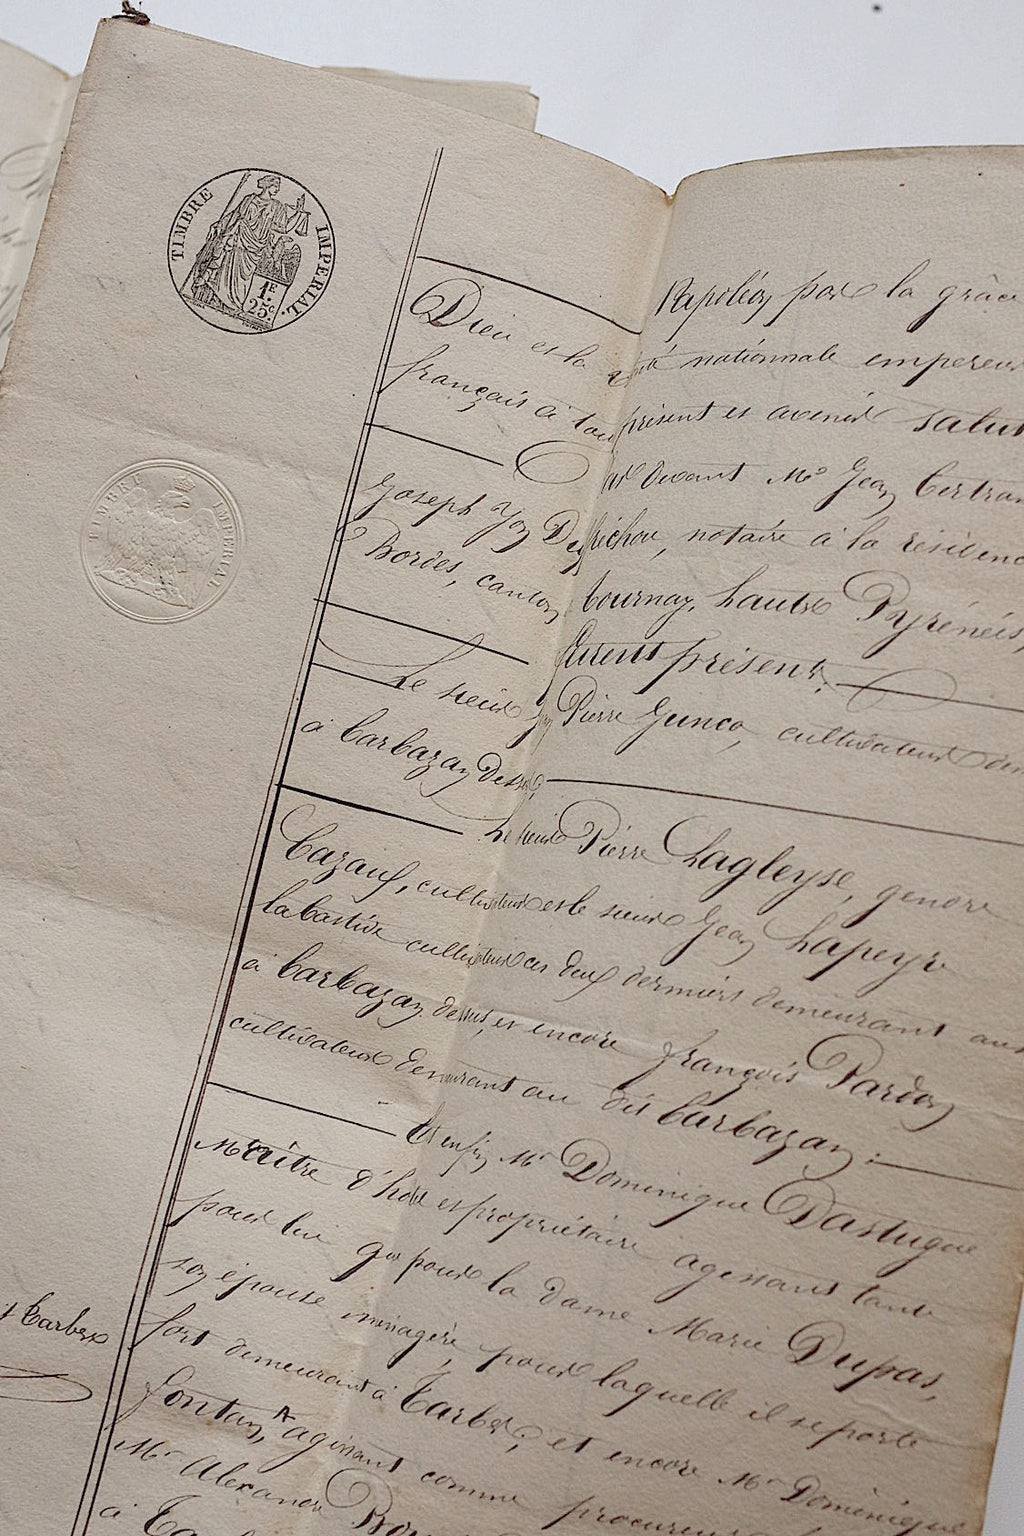 TIMBRE IMPERIAL.
1F.
25c
TIMBRE IMPERIAL
Napoléon par la grâce
Dieu et la nationnale empereur
français à tous présent et avenir salut
Par devant Me Jean Bertran
Joseph notaire à la résidenc
Bordes, canton tournay, hautes Pyrénées,
furent présents.
Le sieur Jean Pierre Junca, cultivateur
à barbazan Dessus,
Le sieur Pierre Lagleyse, gendre
Cazaux, cultivateur et le sieur Jean Lapeyre
labastide cultivateur ces deux derniers demeurant aus
à barbazan dessus, et encore françois Pardon
cultivateur demeurant au dit barbazan;
Et enfin Mr Dominique Dastugue
Maitre d'hotel et propriétaire agissant tant
pour lui que pour la dame Marie Dupas,
son épouse ménagère, pour laquelle il se porte
fort demeurant à Tarbes, et encore Mr Dominique
fontan, agissant comme procureur
Mr Alexandre
à
t Tarbes